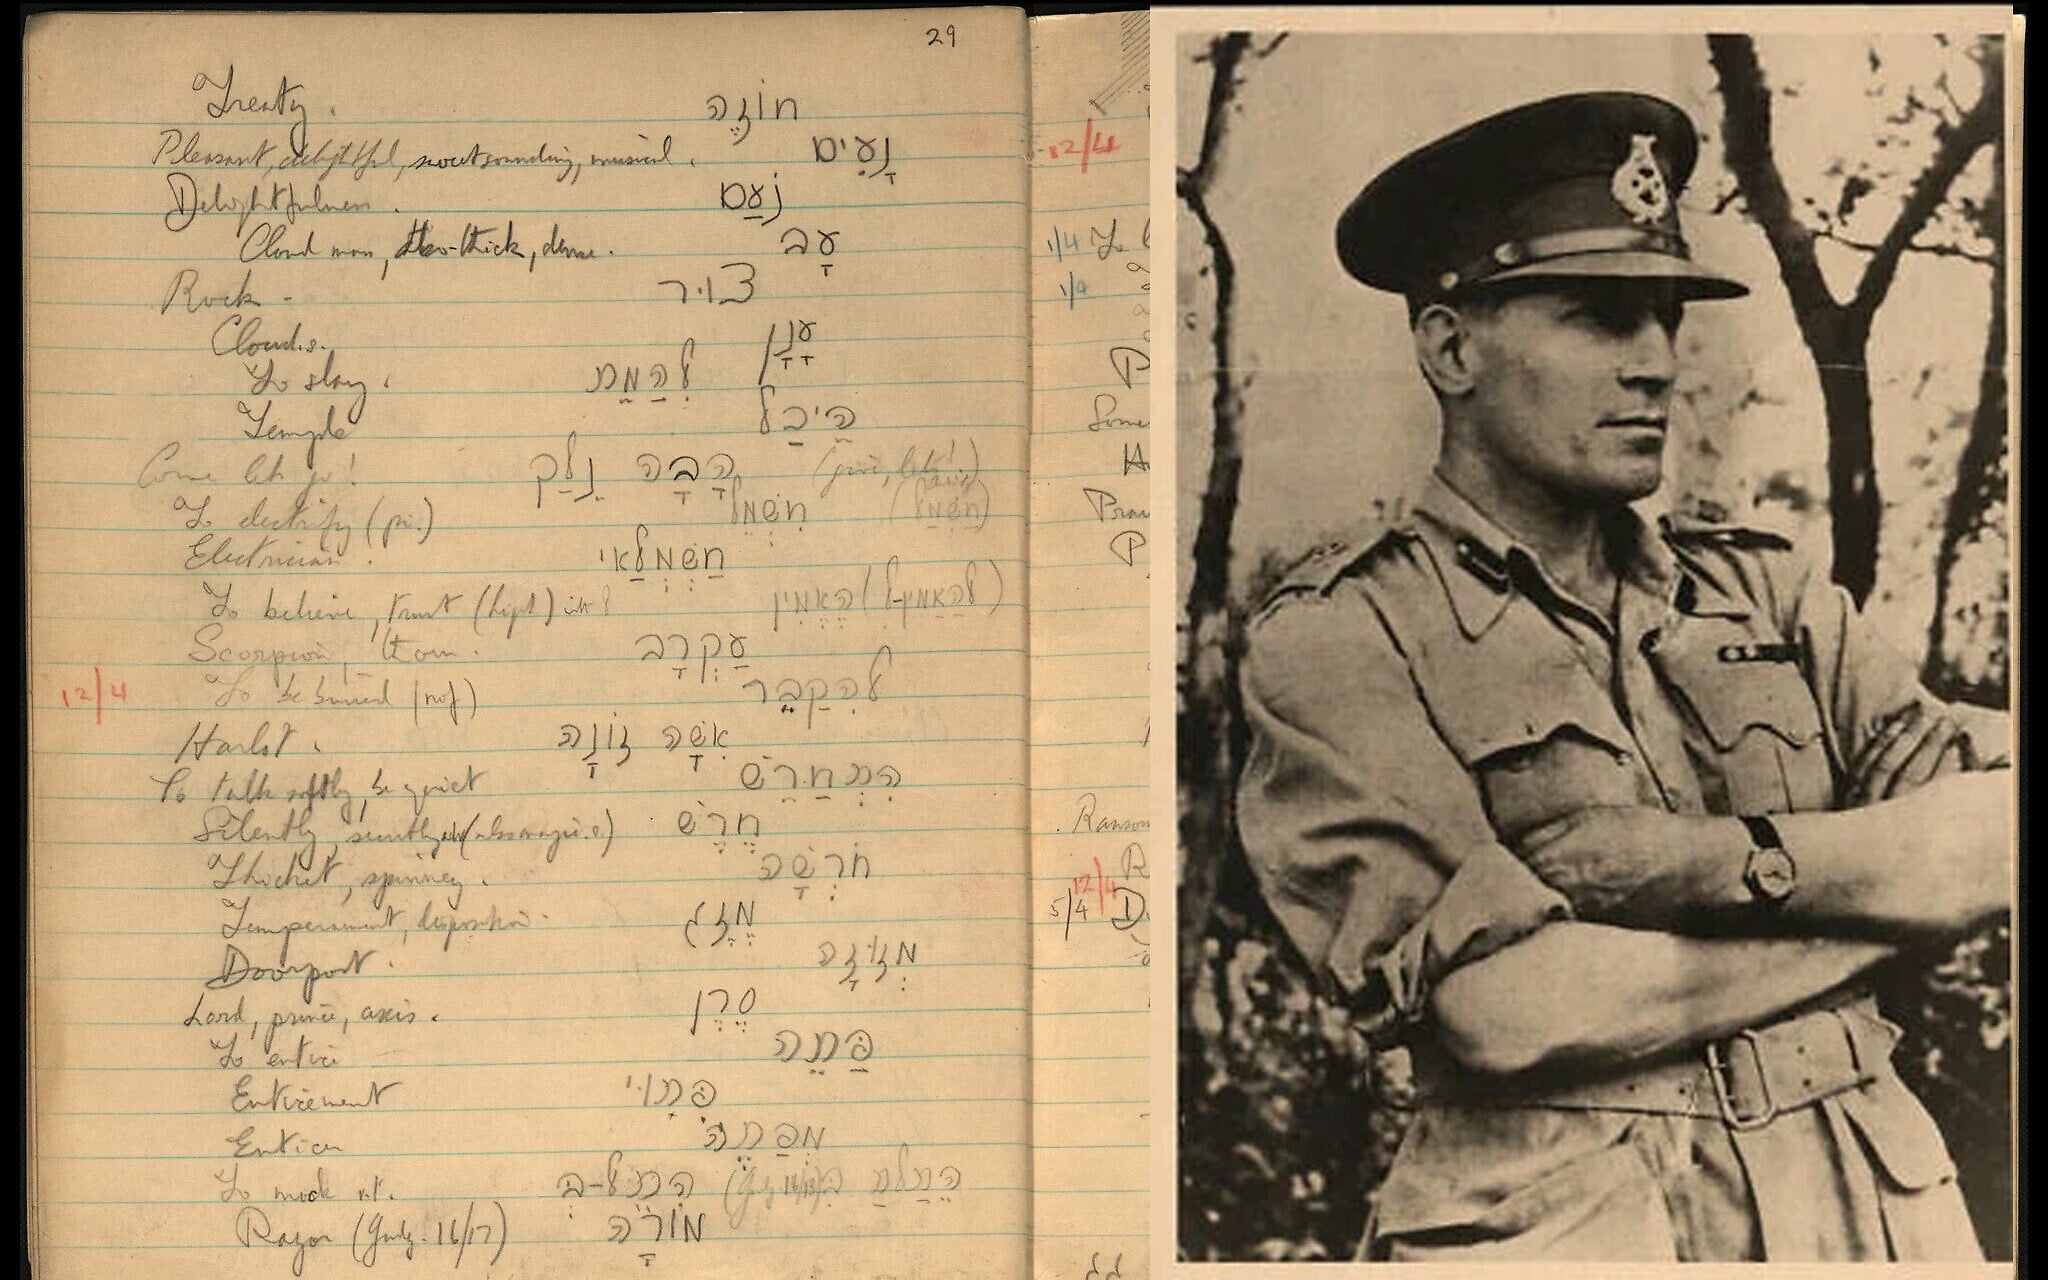 29
Treaty. חוֹזֶה
Pleasant, delightful, sweetsounding, musical. נָעִים
Delightfulness. נֹעַם
Cloud man, thick, dense. עָב
Rock - צויר
Clouds. עָנָן
To slay. לְהַמֵת
Temple הֵיכַל
Come let's go! הָבָה נֵלֵךְ (give, let's!)
To electrify (pi.) חִשְׁמֵל (חִשְׁמַל)
Electrician. חַשְׁמְלַאי
To believe, trust (hiph) with ל הֶאֱמִין (לְהַאֲמִין-לְ)
Scorpion, thorn. עַקְרָב
12/4 To be buried (nif) לְהִקָבֵר
Harlot. אִשָׁה זוֹנָה
To talk softly, be quiet הִתְחַרֵשׁ
Silently, secretly חֶרֶשׁ
Thicket, spinney. חֹרְשָׁה
Temperament, disposition. מֶזֶג
Doorpost. מְזוּזָה
Lord, prince, axis. סֶרֶן
To entice פַּתֵה
Enticement פִּתוּי
Enticer מְפַתֶה
To mock v.t. הִתֵל-בְּ (Judg. 16/13)
Razor (Judg. 16/17) מוֹרָה
12/4
1/4 To
1/4
Some
Ransom
12/4
5/4